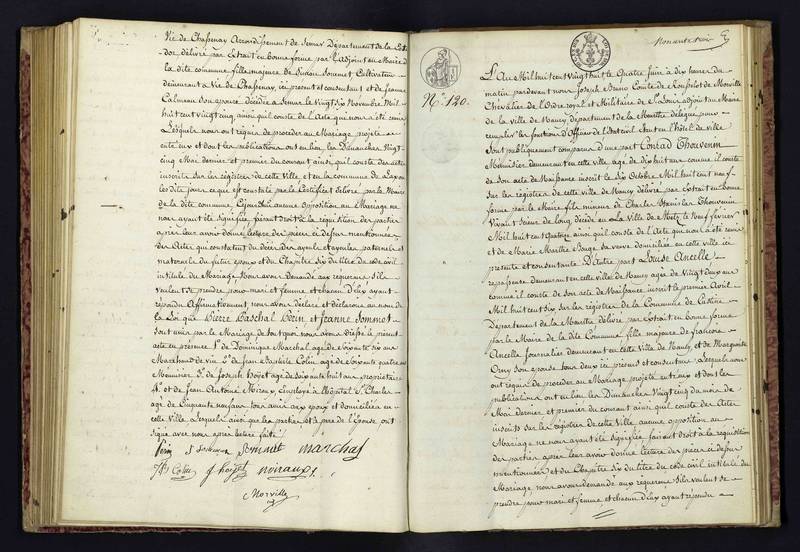 Vic de Chassenay arrondissement de Semur Département de la Côte
d'or, délivré par Extrait en bonne forme par l'adjoint au Maire de
la dite commune fille majeure de Sommet Cultivateur
demeurant à Vic de Chassenay, ici présent et consentant et de Jeanne
Calmeau son épouse décédée à Semur le vingt six Novembre Mil
huit cent vingt cinq, ainsi qu'il conste de l'acte qui nous a été remis
Lesquels nous ont requis de procéder au Mariage projeté
entr'eux et dont les publications ont eu lieu les Dimanches Vingt
cinq Mai dernier et premier du courant ainsi qu'il conste des actes
inscrits sur les registres de cette Ville, et en la commune de
les dits jours, ce qui est constaté par le Certificat délivré par le Maire
de la dite commune, aucune opposition au Mariage ne
nous ayant été signifiée, faisant droit à la réquisition des parties
après leur avoir donné lecture des pièces ci dessus mentionnées
des actes qui constatent du décès des ayeuls et ayeules paternels et
maternels du futur époux et du Chapitre Six du titre du code civil
intitulé du Mariage, Nous avons demandé aux requérans s'ils
veulent se prendre pour mari et femme et chacun d'eux ayant
répondu affirmativement, nous avons déclaré et déclarons au nom de
la Loi que Pierre Paschal Perin et Jeanne Sommet
sont unis par le Mariage de tout quoi nous avons dressé le présent
acte en présence 1º de Dominique Marchal agé de soixante six ans
Marchand de vin 2º de Jean Baptiste Colin agé de soixante quatre ans
Menuisier 3º de Joseph Hoyet agé de soixante huit ans propriétaire
4º et de Jean Antoine Miraux, employé à l'hôpital St. Charles
agé de Cinquante neuf ans, tous amis des époux et domiciliés en
cette Ville, Lesquels ainsi que les parties et le père de l'Epouse, ont
signé avec nous après lecture faite
Perin Sommet marchal
JB Colin J hoyet miraux
Morville
Nonante trois
Nº. 120.
L'An Mil huit cent Vingt huit le Quatre Juin à dix heures du
matin pardevant nous Joseph Bruno Comte de Rousselot de Morville
Chevalier de l'Ordre royal et Militaire de St. Louis adjoint au Maire
de la ville de Nancy Département de la Meurthe délégué pour
remplir les fonctions d'officier de l'état civil Etant en l'hôtel de Ville
Sont publiquement comparus d'une part Conrad Thouvenin
Menuisier demeurant en cette ville agé de dix huit ans comme il conste
de son acte de Naissance inscrit le six Octobre Mil huit cent neuf
sur les registres de cette ville de Nancy délivré par Extrait en bonne
forme par le Maire fils mineur de Charles Stanislas Thouvenin
Vivant scieur de long, décédé en la Ville de Metz le Neuf février
Mil huit cent Quatorze ainsi qu'il conste de l'acte qui nous a été remis
et de Marie Marthe Rouge sa veuve domiciliée en cette ville ici
présente et consentante D'autre part Louise Ancelle
repasseuse demeurant en cette ville de Nancy agée de Vingt deux ans
comme il conste de son acte de Naissance inscrit le premier Avril
Mil huit cent six sur les registres de la Commune de Custine
Département de la Meurthe délivré par Extrait en bonne forme
par le Maire de la dite Commune fille majeure de francois
Ancelle Journalier demeurant en cette Ville de Nancy, et de Marguerite
Orry son épouse tous deux ici présens et consentans. Lesquels nous
ont requis de procéder au Mariage projeté entr'eux et dont les
publications ont eu lieu les Dimanches Vingt cinq du mois de
Mai dernier et premier du courant ainsi qu'il conste des actes
inscrits sur les registres de cette Ville aucune opposition au
Mariage ne nous ayant été signifiée faisant droit à la réquisition
des parties après leur avoir donné lecture des pièces ci dessus
mentionnées et du Chapitre Six du titre du code civil intitulé du
Mariage, nous avons demandé aux requérans s'ils veulent se
prendre pour mari et femme, et chacun d'eux ayant répondu